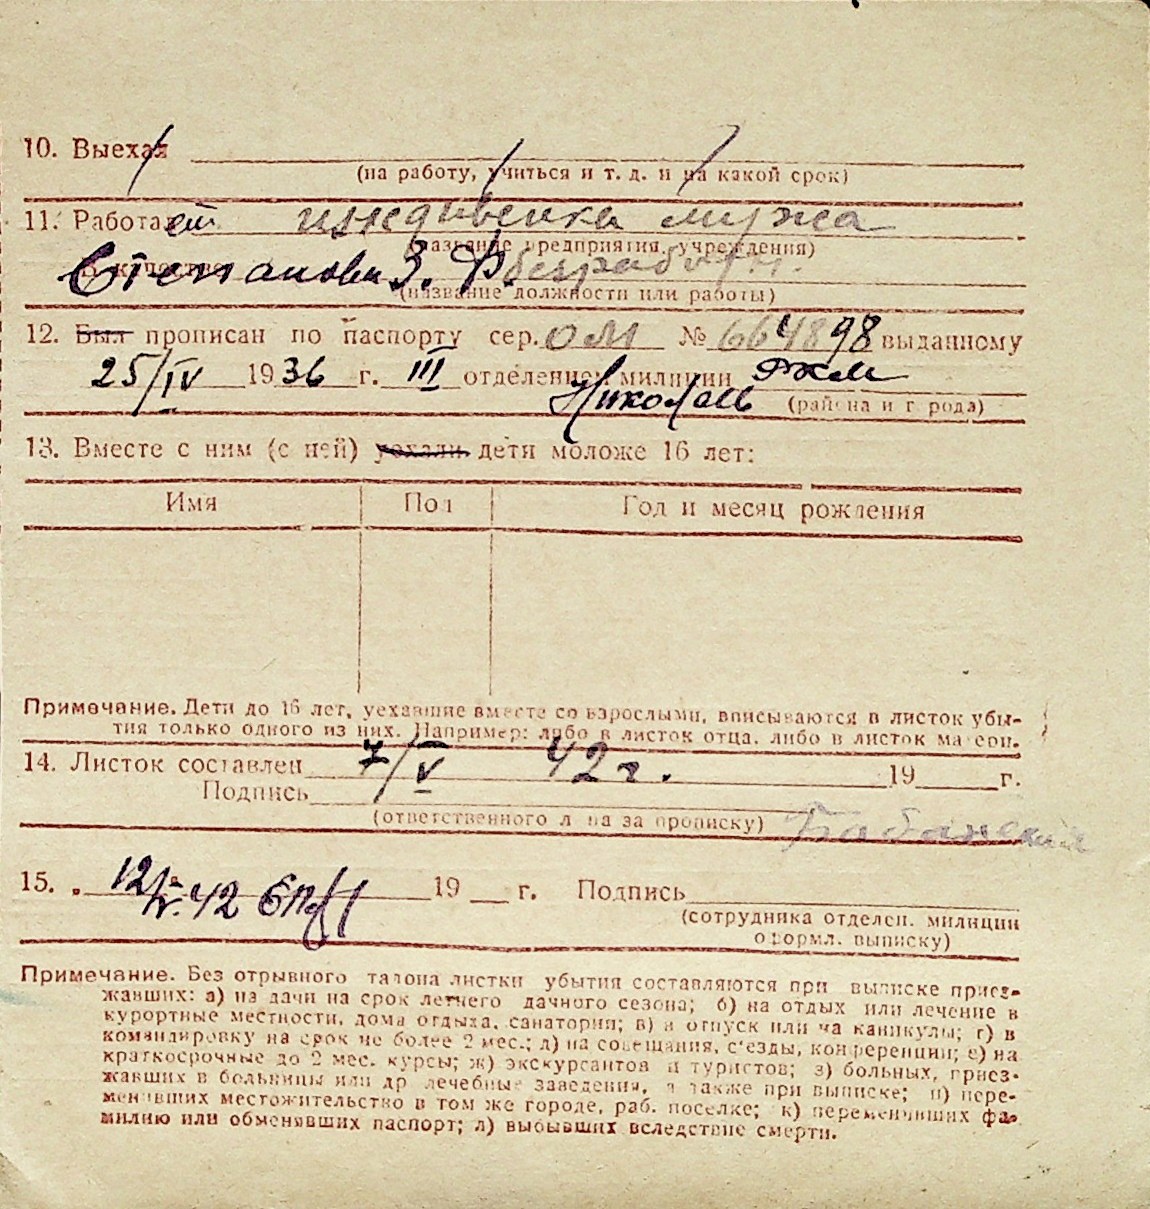 10. Выехал
(на работу, учиться и т. д. и на какой срок)
11. Работает иждивенка мужа
(название предприятия, учреждения)
В качестве Степанова З. Ф. безработн.
(название должности или работы)
12. Был прописан по паспорту сер. ОМ № 664898 выданному
25/IV 1936 г. III отделением милиции РКМ
Николаев (района и города)
13. Вместе с ним (с ней) уехали дети моложе 16 лет:
Имя Пол Год и месяц рождения
Примечание. Дети до 16 лет, уехавшие вместе со взрослыми, вписываются в листок убы-
тия только одного из них. Например: либо в листок отца, либо в листок матери.
14. Листок составлен 7/V 42 г. 19 г.
Подпись
(ответственного лица за прописку) Бабанский
15. 12/V 42 19 г. Подпись
(сотрудника отделен. милиции
оформл. выписку)
Примечание. Без отрывного талона листки убытия составляются при выписке приез-
жавших: а) на дачи на срок летнего дачного сезона; б) на отдых или лечение в
курортные местности, дома отдыха, санатории; в) в отпуск или на каникулы; г) в
командировку на срок не более 2 мес.; д) на совещания, с'езды, конференции; е) на
краткосрочные до 2 мес. курсы; ж) экскурсантов и туристов; з) больных, приез-
жавших в больницы или др лечебные заведения, а также при выписке; и) пере-
менивших местожительство в том же городе, раб. поселке; к) переменивших фа-
милию или обменявших паспорт; л) выбывших вследствие смерти.